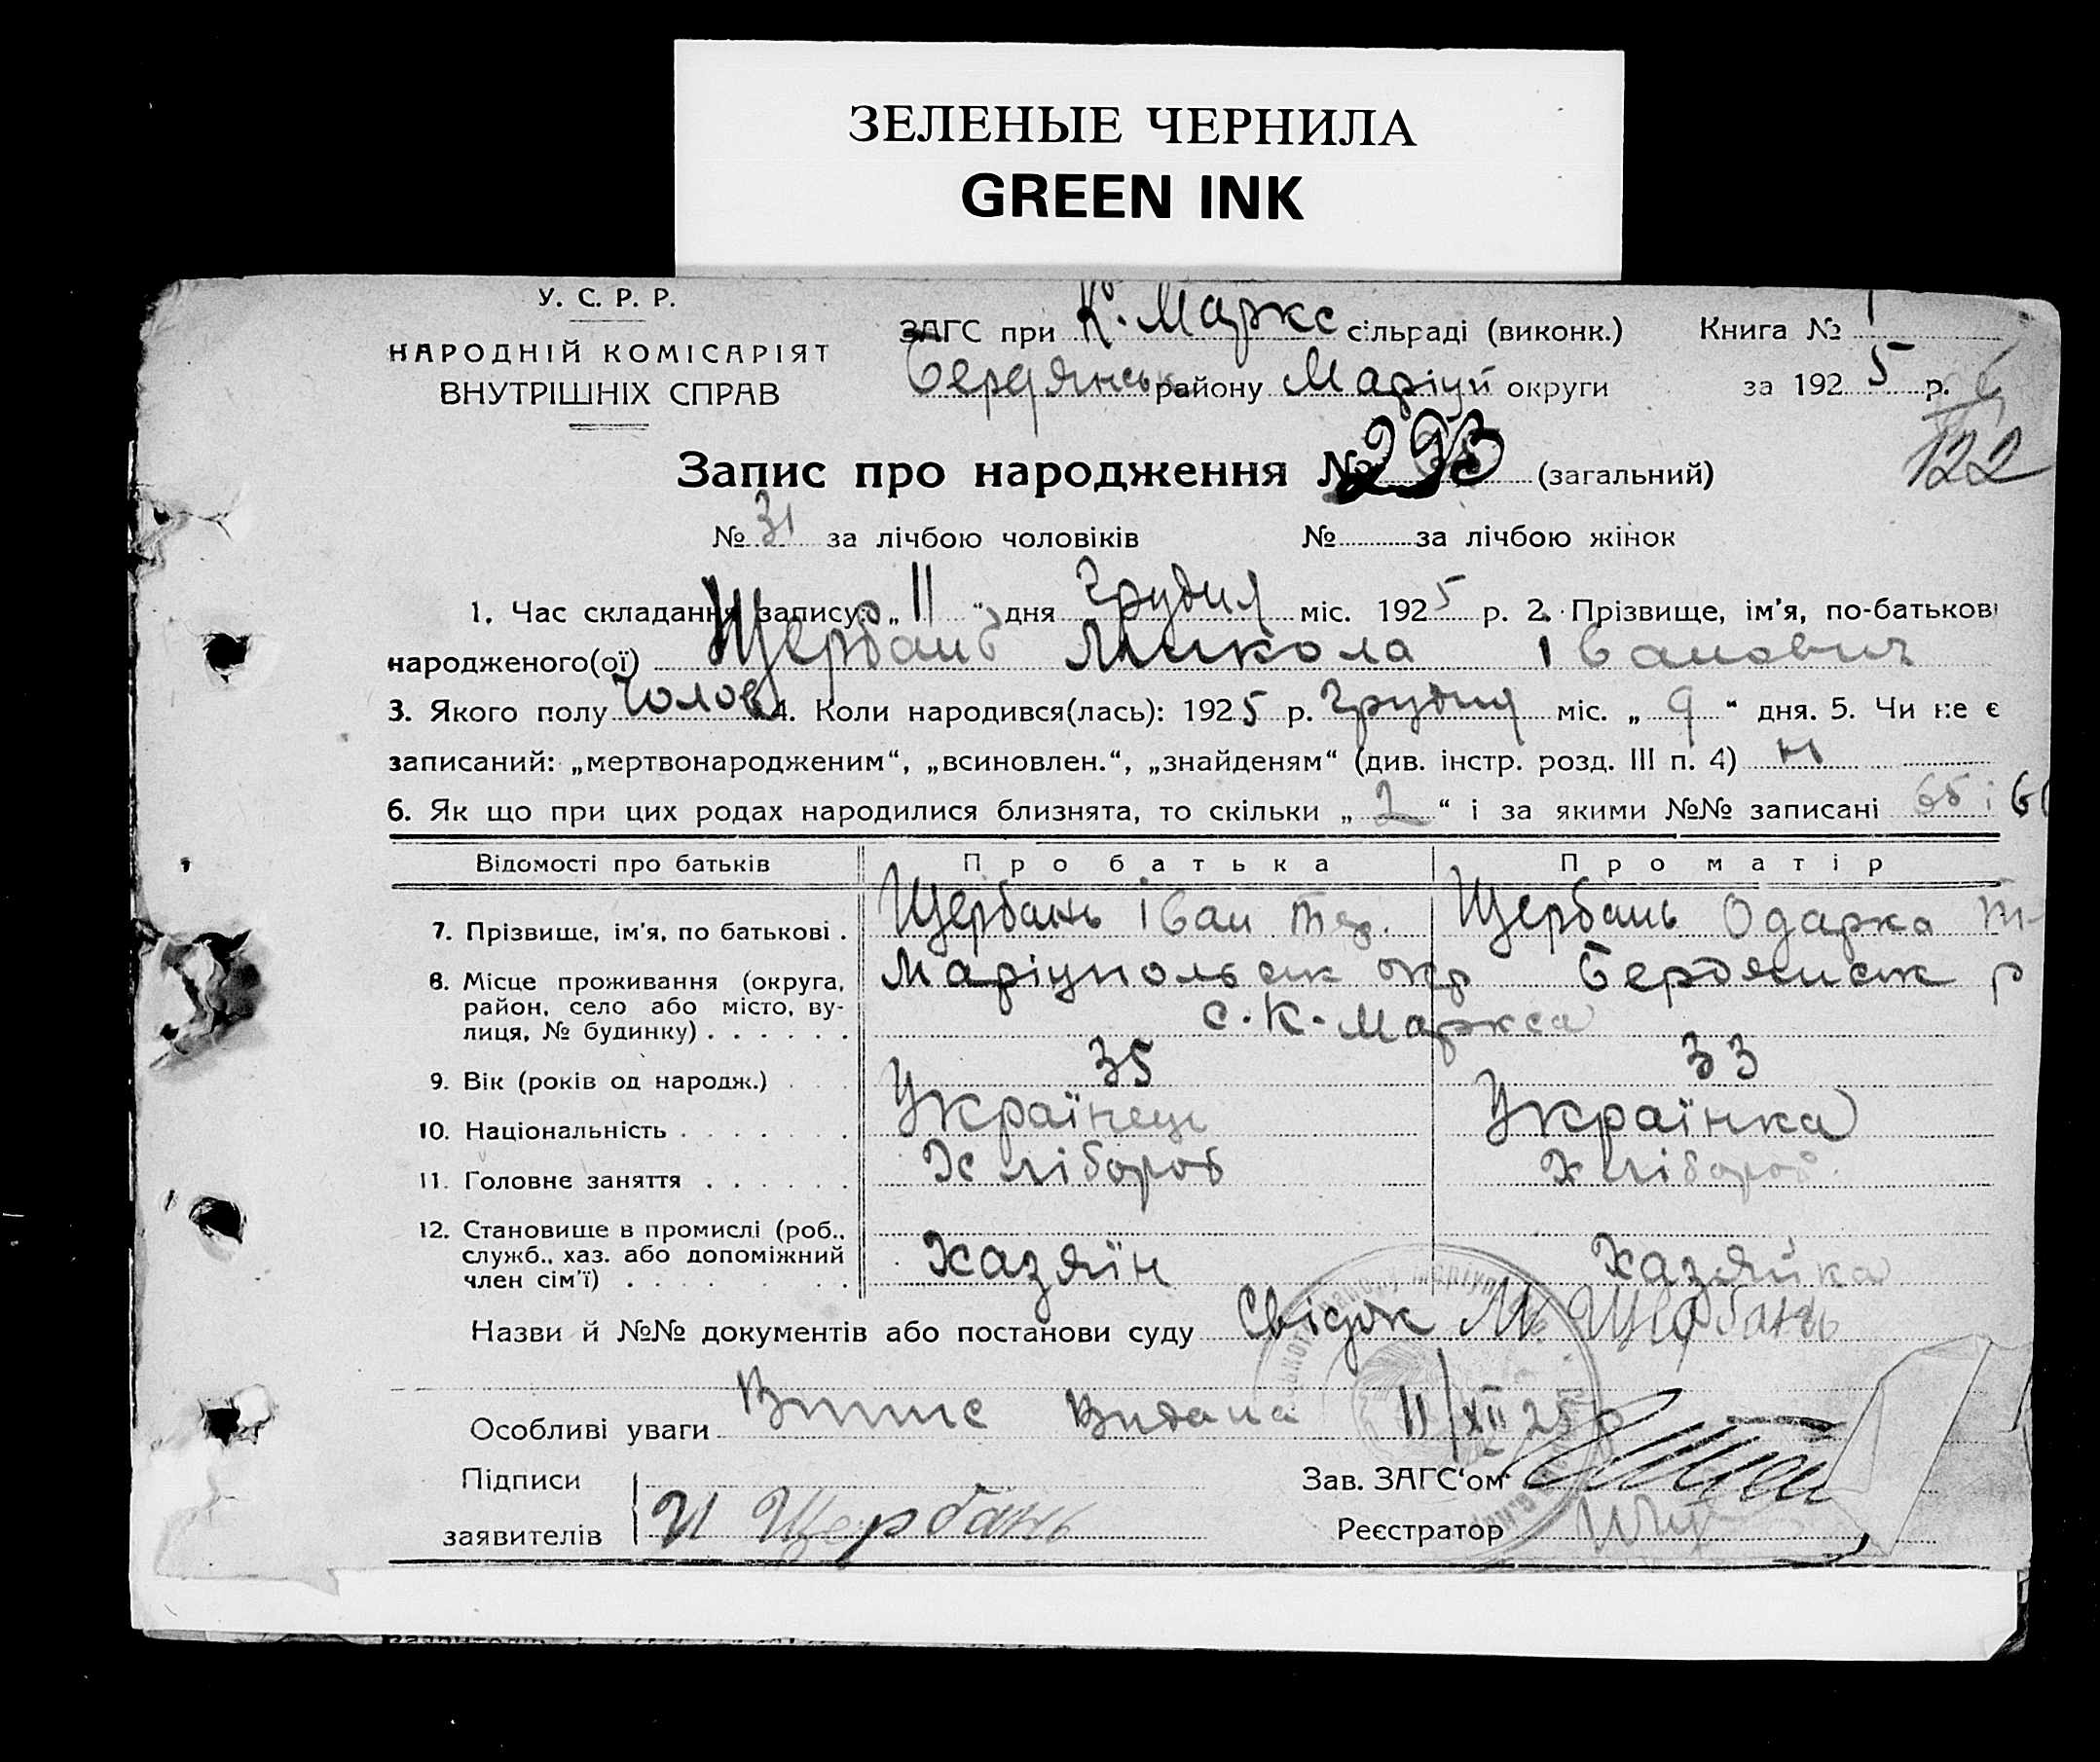 ЗЕЛЕНЫЕ ЧЕРНИЛА
GREEN INK
У. С. Р. Р.
НАРОДНІЙ КОМІСАРІЯТ
ВНУТРІШНІХ СПРАВ
ЗАГС при К. Маркс сільраді (виконк.) Книга № 1
Бердянськ району Маріуп округи за 1925 р.
122
Запис про народження № 293 (загальний)
№ 31 за лічбою чоловіків № за лічбою жінок
1. Час складання запису: „11“ дня Грудня міс. 1925 р. 2. Прізвище, ім’я, по-батькові
народженого(ої) Щербань Микола Іванович
3. Якого полу Чолов 4. Коли народився(лась): 1925 р. Грудня міс. „9“ дня. 5. Чи не є
записаний: „мертвонародженим“, „всиновлен.“, „знайденям“ (див. інстр. розд. III п. 4) н
6. Як що при цих родах народилися близнята, то скільки „2“ і за якими №№ записані 65 і 6
Відомості про батьків Про батька Про матір
7. Прізвище, ім’я, по батькові . Щербань Іван Щербань Одарка
8. Місце проживання (округа, район, село або місто, вулиця, № будинку) . . . . . . Маріупольськ окр Бердянськ р
с. К. Маркса
9. Вік (років од народж.) . . . 35 33
10. Національність . . . . . . . Українець Українка
11. Головне заняття . . . . . . Хлібороб Хлібороб
12. Становище в промислі (роб., служб., хаз. або допоміжний член сім’ї) . . . . . . . . Хазяїн Хазяйка
Назви й №№ документів або постанови суду Свідок М Щербань
Особливі уваги Випис Видана 11/XII 25 р
Підписи Зав. ЗАГС‘ом
заявителів И Щербань Реєстратор